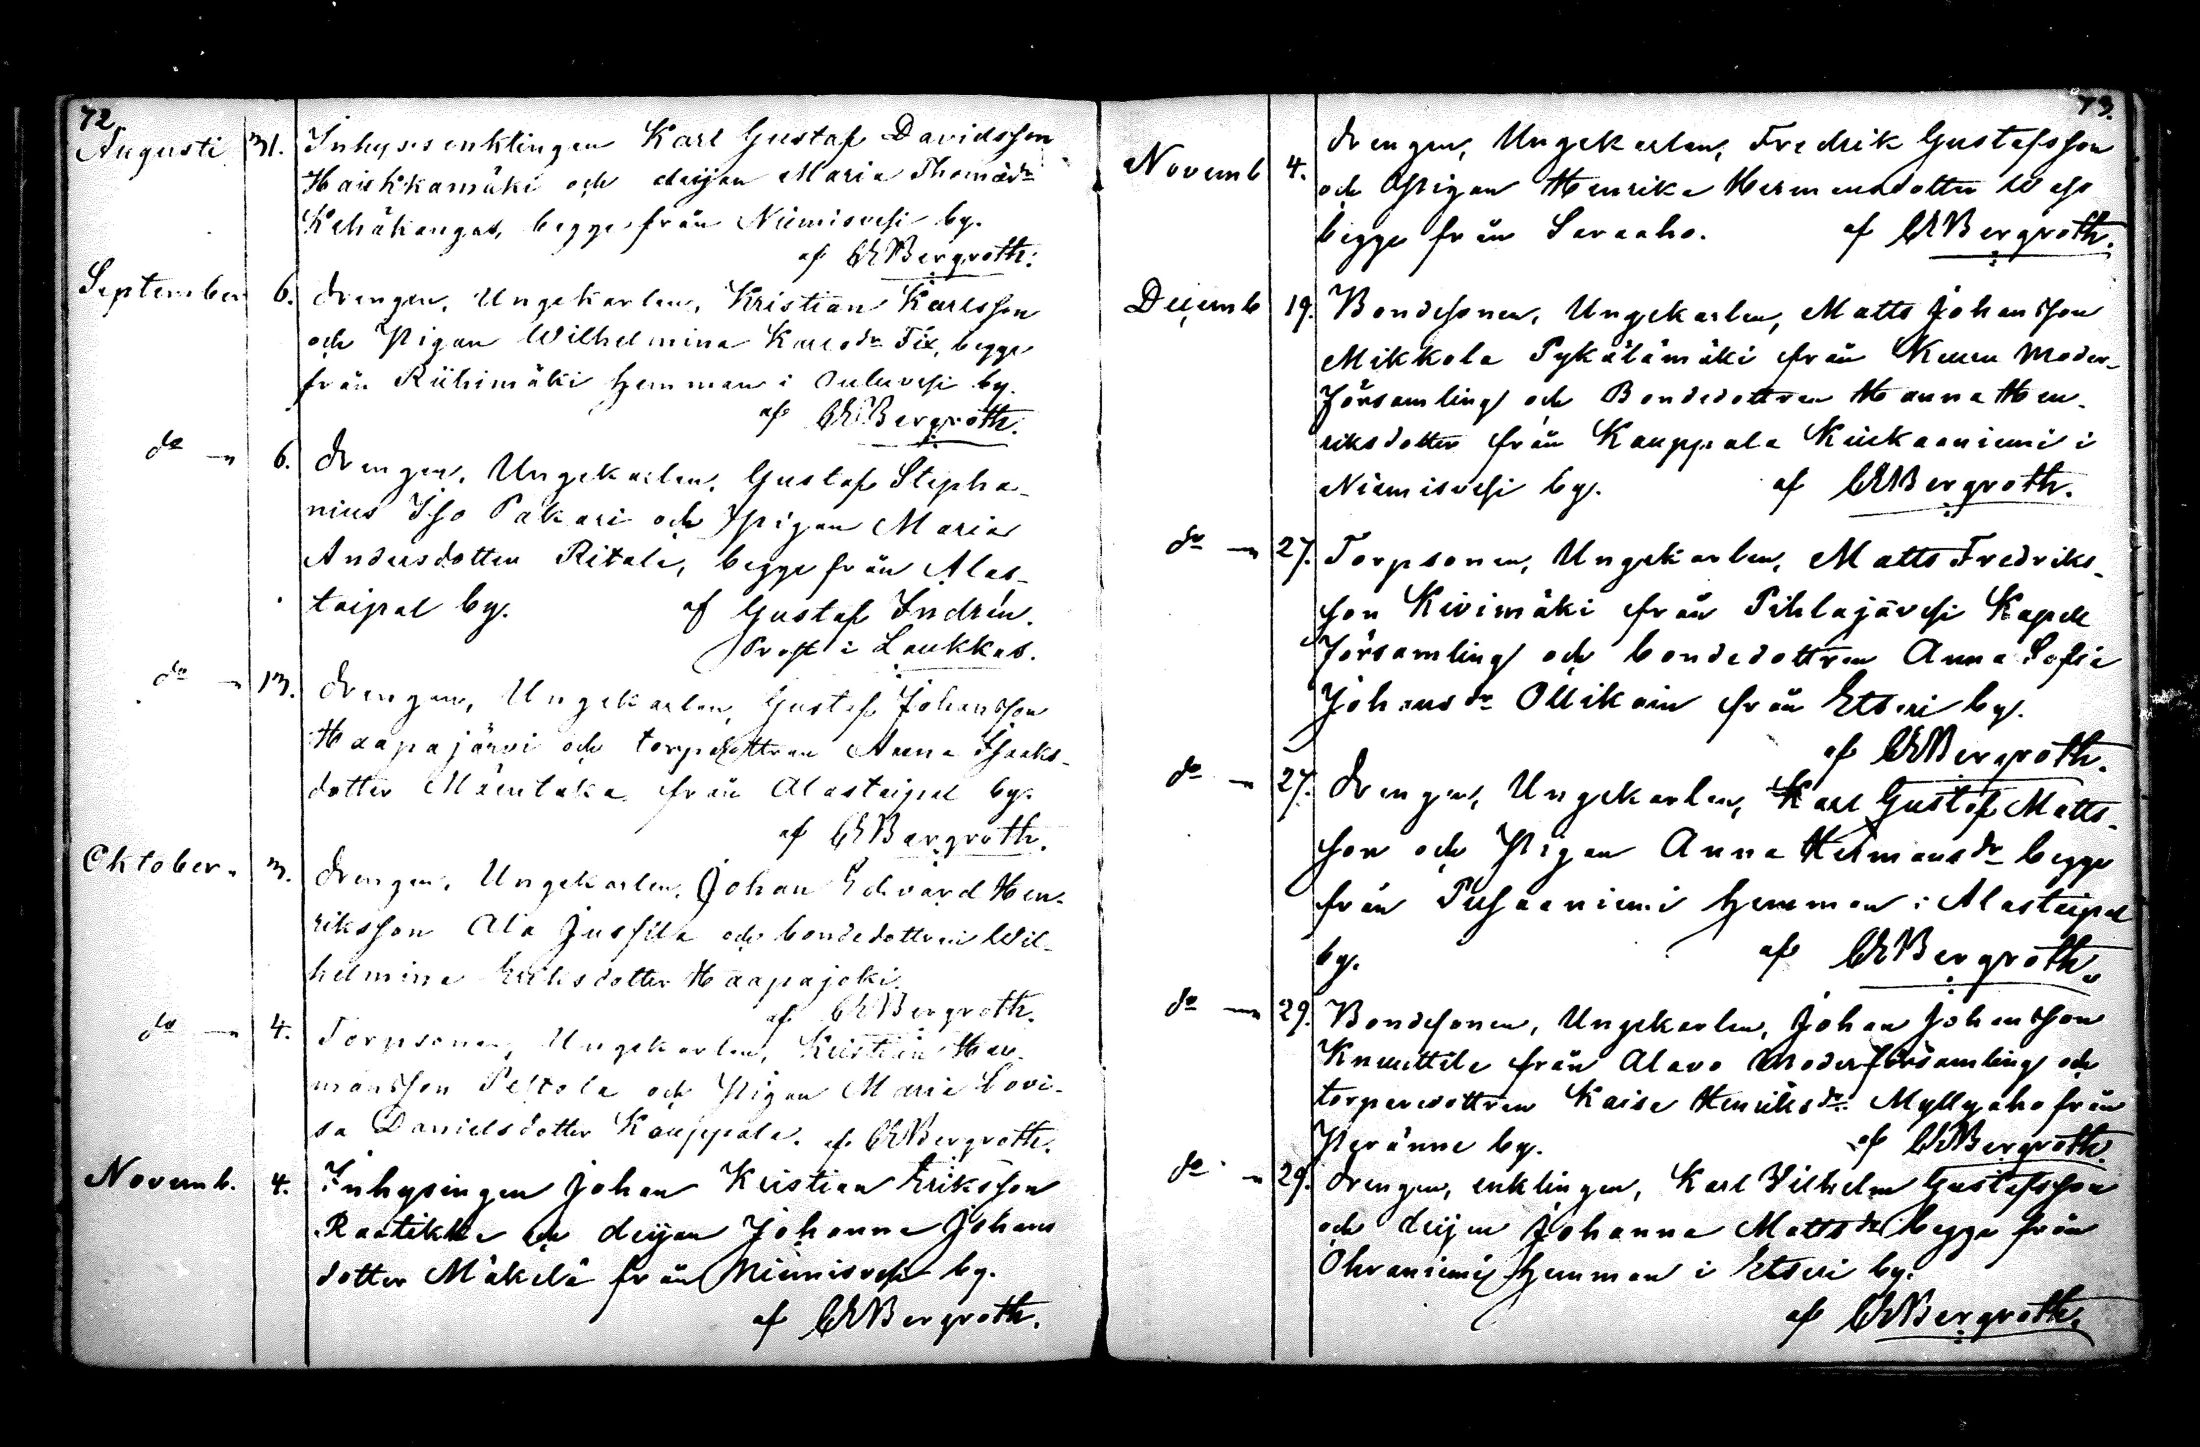 72
Augusti 31. Inhyses enklingen Karl Gustaf Davidsson
Haukkamäki och deijan Maria Thomädr
Kehäkangas, begge från Niemisvesi by.
af CEBergroth.
September 6. drengen, Ungekarlen, Kristian Karlsson
och Pigan Wilhelmina Karlsdr Fix, begge
från Riihimäki hemman i Ouluvesi by.
af CEBergroth.
do — 6. drengen, Ungekarlen, Gustaf Stepha-
nius Iso Pakari och Pigan Maria
Andersdotter Ritala, begge från Alas-
taipal by. af Gustaf Indrén.
Prost i Laukkas.
do — 13. drengen, Ungekarlen, Gustaf Johansson
Haapajärvi och torpdottren Anna Isaks-
dotter Mäentaka från Alastaipal by.
af CEBergroth.
Oktober. 3. drengen, Ungekarlen, Johan Edvard Hen-
riksson Ala Jussila och bondedottren Wil-
helmina Eriksdotter Haapajoki.
af CEBergroth.
do — 4. Torpsonen, Ungekarlen, Kristian Her-
mansson Peltola och Pigan Maria Lovi-
sa Danielsdotter Kauppala. af CEBergroth.
Novemb. 4. Inhysingen Johan Kristian Eriksson
Raatikka och deijan Johanna Johans
dotter Mäkelä från Niemisvesi by.
af CEBergroth.
73.
Novemb 4. drengen, Ungekarlen, Fredrik Gustafsson
och Pigan Henrika Hermansdotter
begge från Saraaho. af CEBergroth.
Decemb 19. Bondesonen, Ungekarlen, Matts Johansson
Mikkola Pykälämäki från Keuru Moder-
församling och Bondedottren Hanna Hen-
riksdotter från Kauppala Kiukaaniemi i
Niemisvesi by. af CEBergroth.
do — 27. Torpsonen, Ungekarlen, Matts Fredriks-
son Kivimäki från Pihlajavesi Kapell
församling och bondedottren Anna Sofia
Johansdr Ollikain från Etseri by.
af CEBergroth.
do — 27. drengen, Ungekarlen, Karl Gustaf Matts-
son och Pigan Anna Hermansdr begge
från hemman i Alastaipal
by. af CEBergroth.
do — 29. Bondesonen, Ungekarlen, Johan Johansson
Knuuttila från Alavo Moderförsamling och
torparedottren Kaisa Henriksdr Myllyaho från
Peränne by. af CEBergroth.
do — 29. drengen, enklingen, Karl Vilhelm Gustafsson
och deijan Johanna Mattsdr begge från
Ohraniemi hemman i Etseri by.
af CEBergroth.